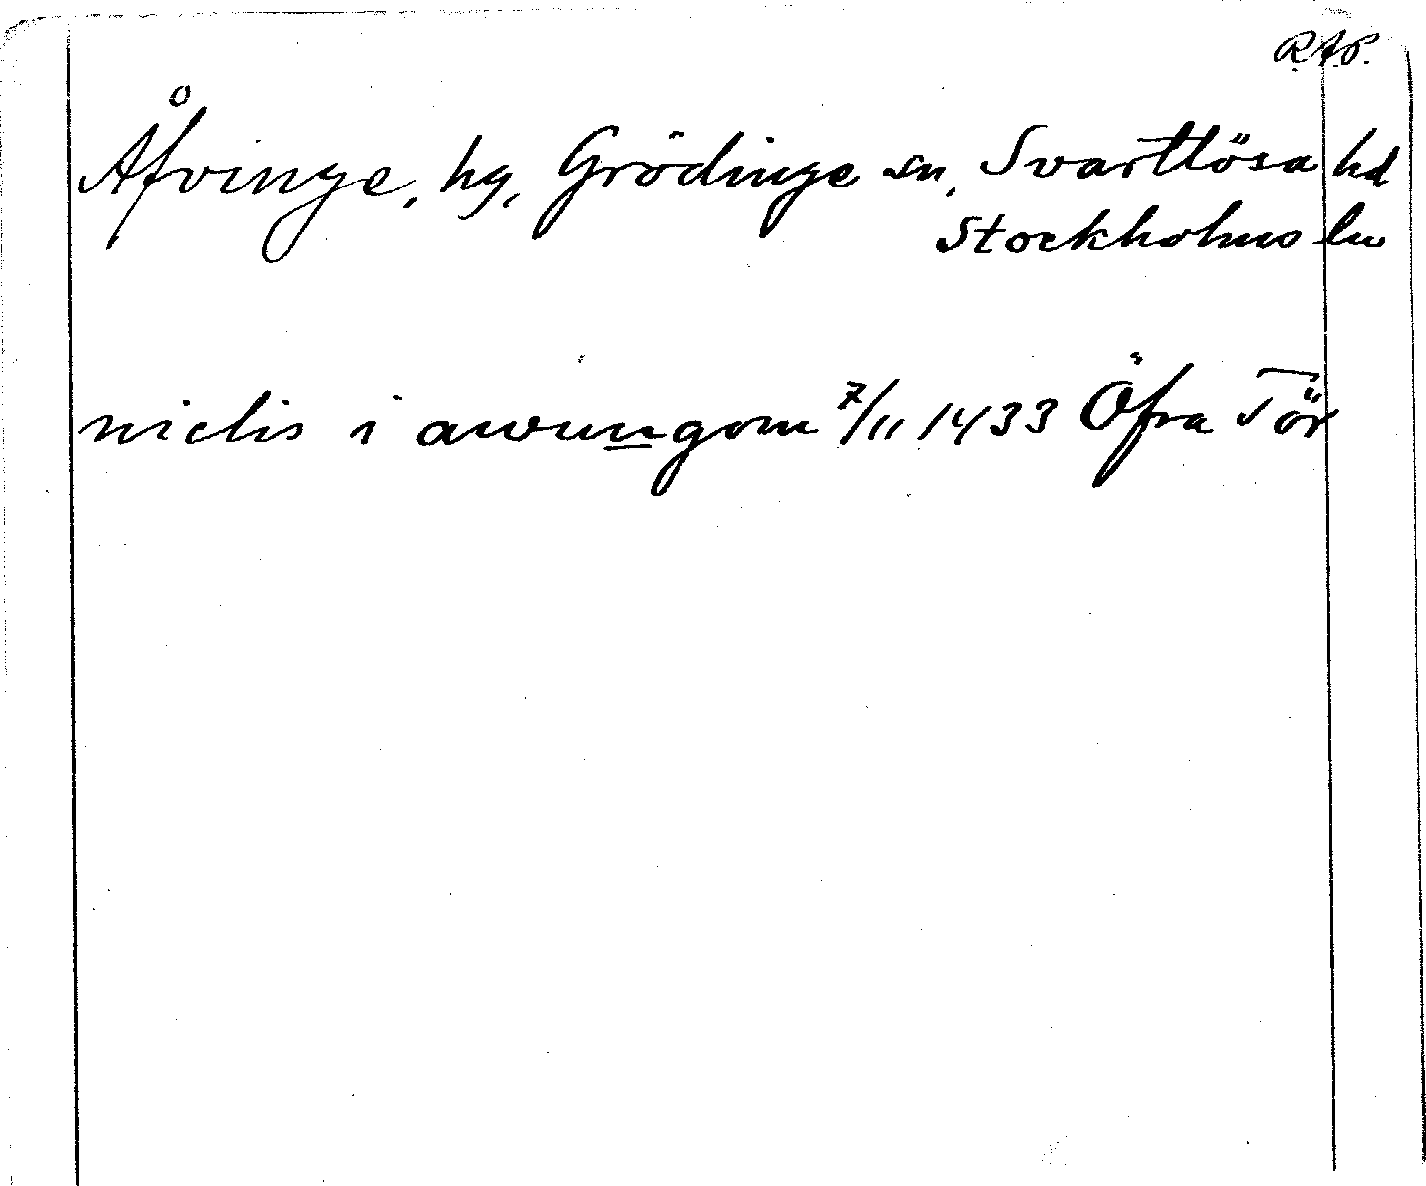 RAP.
Åfvinge, hg, Grödinge sn, Svartlösa hd
Stockholms ln
niclis i awungom 7/11 1433 Öfra Tör